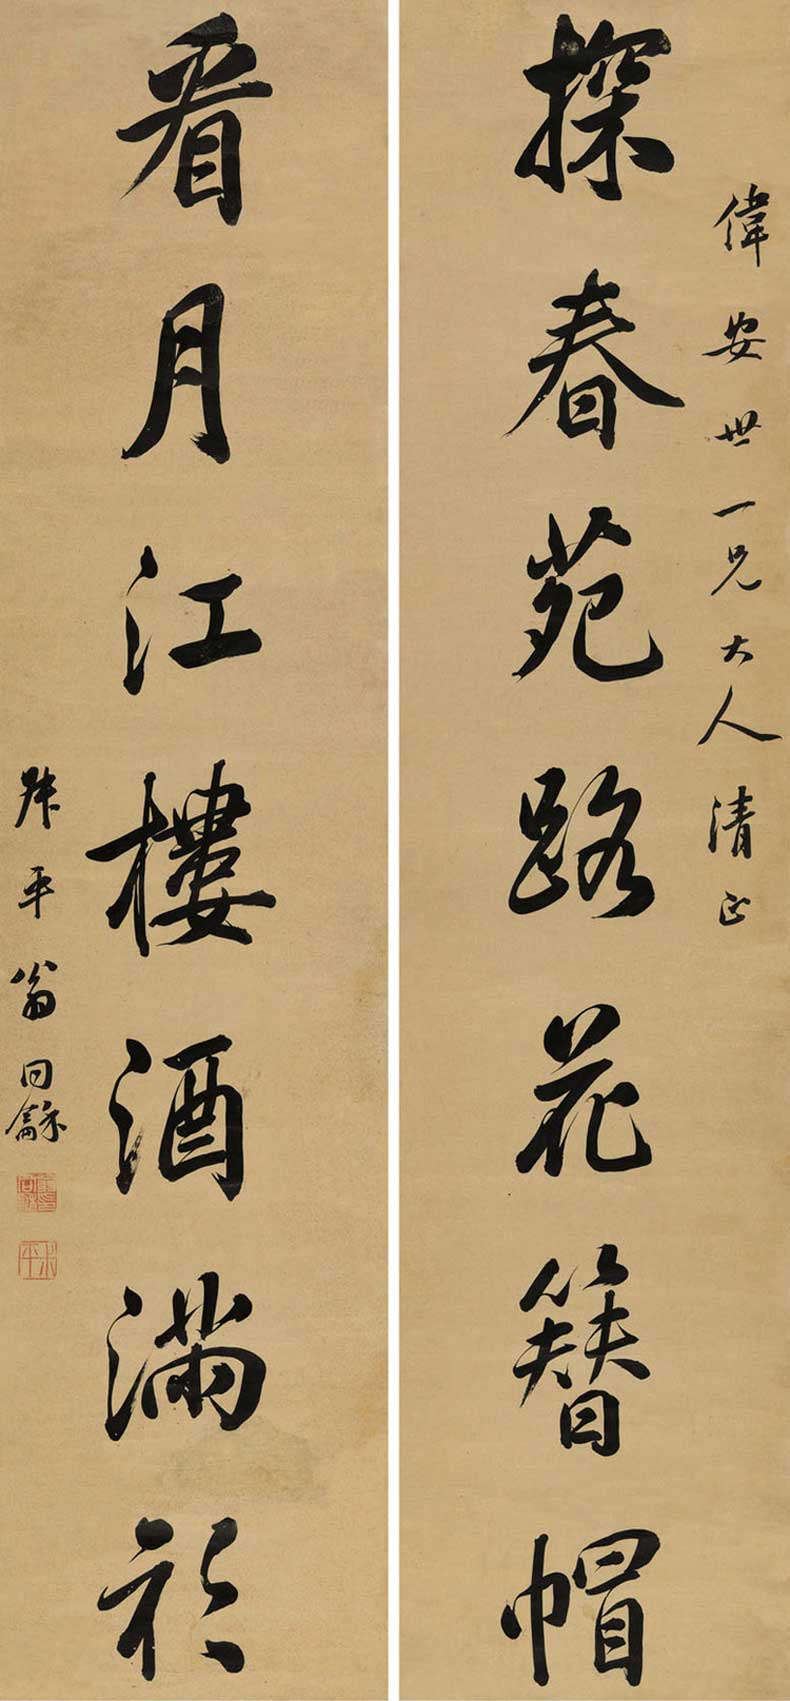 偉安世一兄大人清正
探春苑路花簪帽
看月江樓酒滿衫
叔平翁同龢
叔平